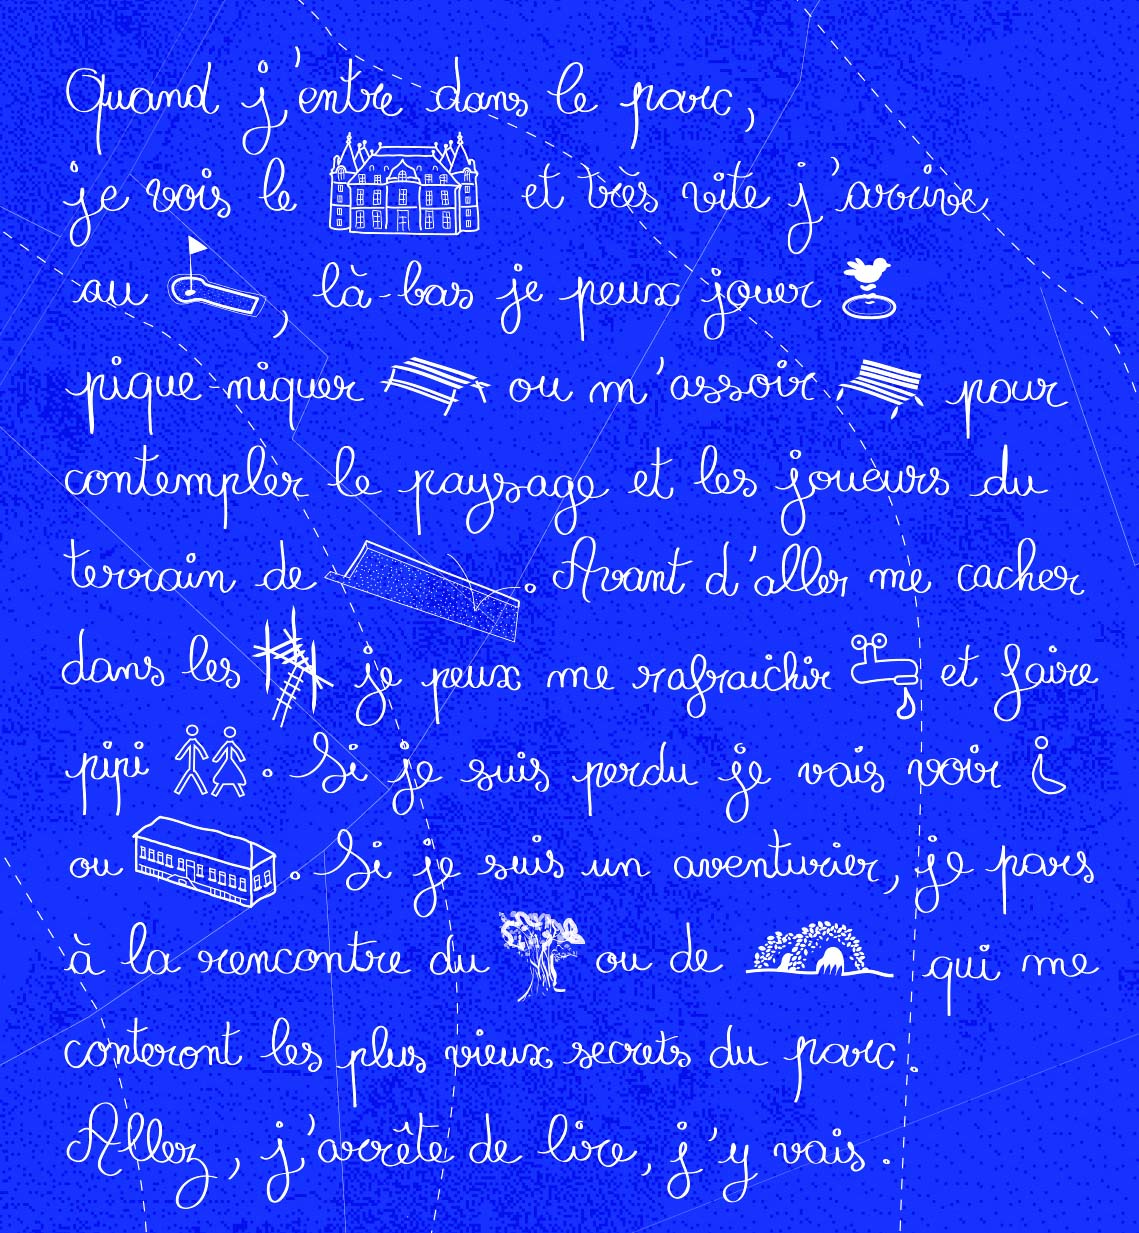 Quand j'entre dans le parc,
je vois le et très vite j'arrive
au , là-bas je peux jouer
pique-niquer ou m'assoir pour
contempler le paysage et les joueurs du
terrain de . Avant d'aller me cacher
dans les je peux me rafraichir et faire
pipi . Si je suis perdu je vais voir
ou . Si je suis un aventurier, je pars
à la rencontre du ou de qui me
conteront les plus vieux secrets du parc.
Allez, j'arrête de lire, j'y vais.